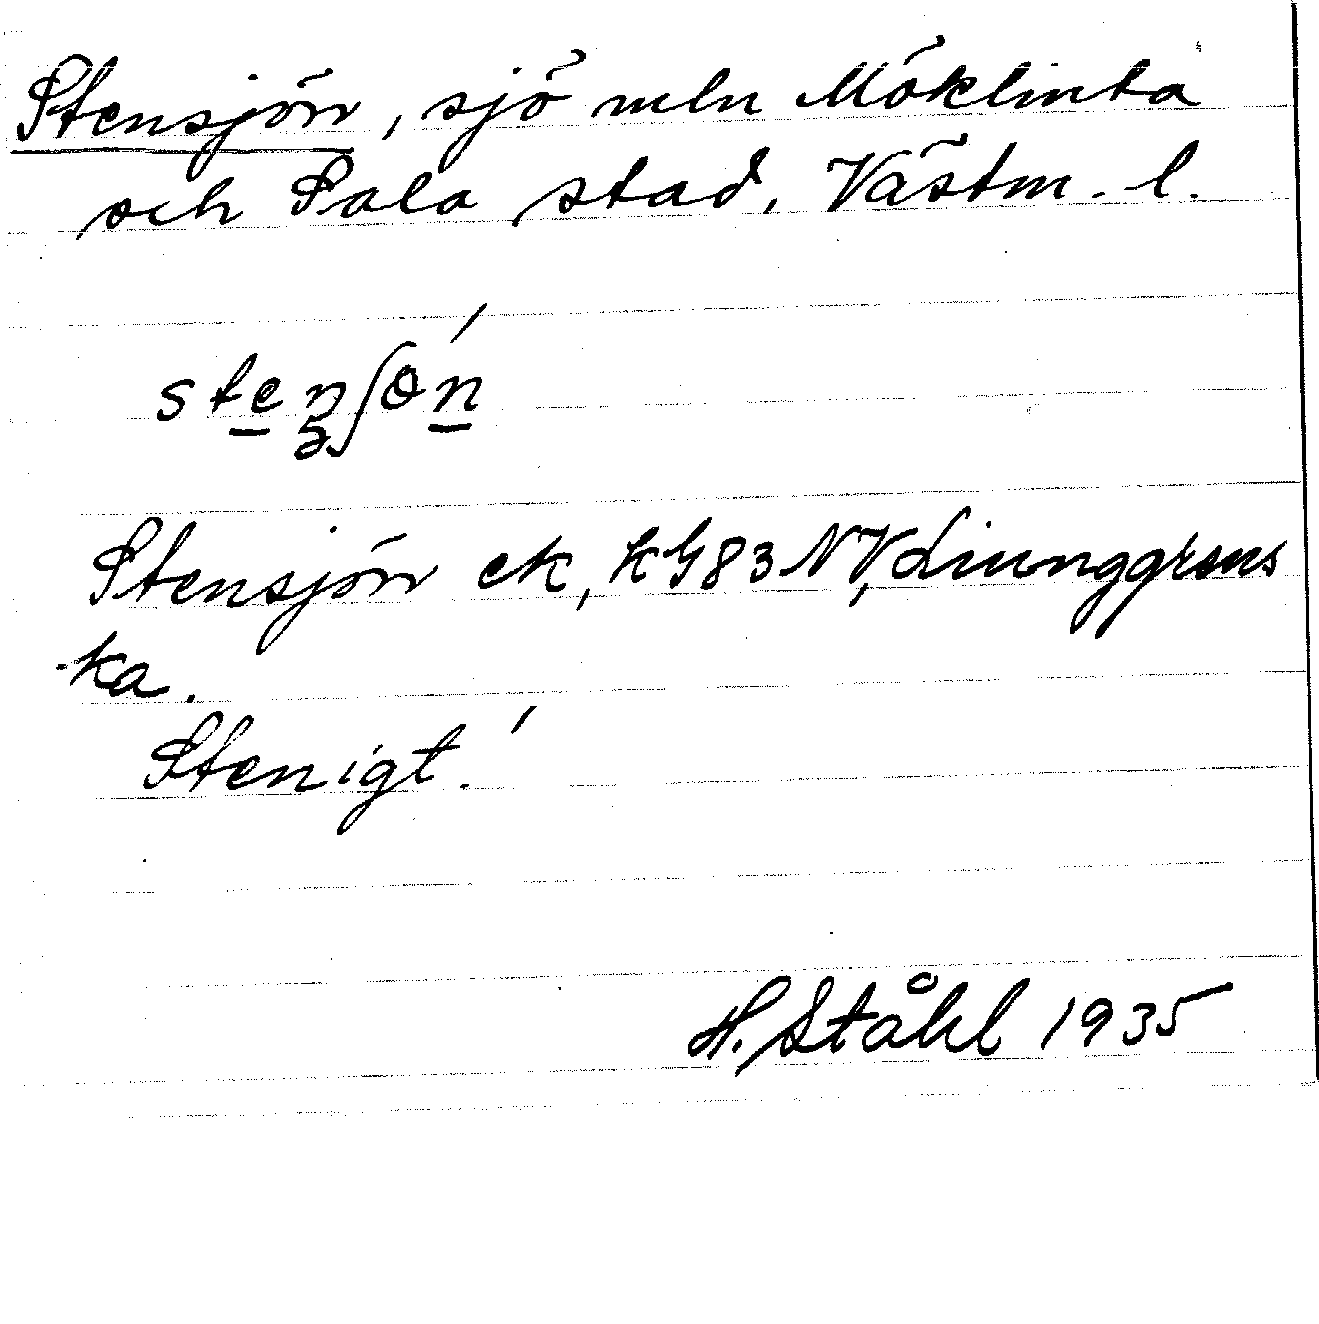 Stensjön, sjö mln Möklinta
och Sala stad, Västm. l.
Stensjön ek, KG83 NV, Liunggrens
-ka.
Stenigt.
H. Ståhl 1935